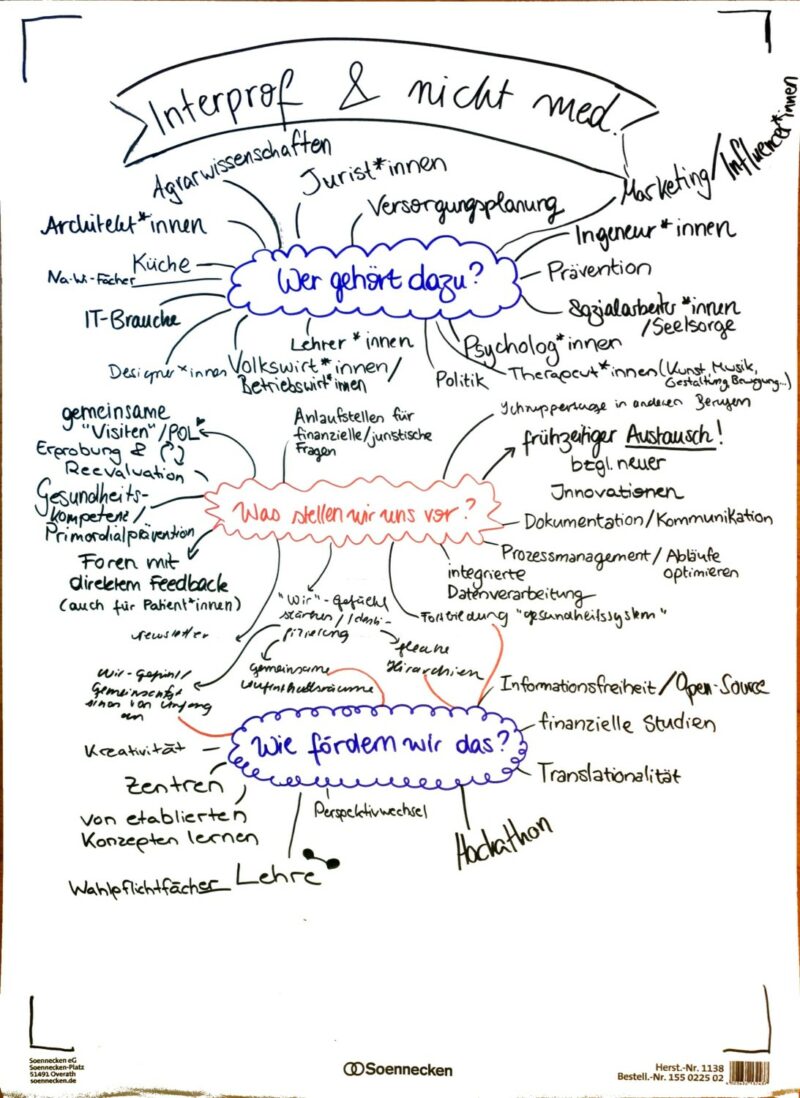 Interprof & nicht med.
Agrarwissenschaften
Jurist*innen
Versorgungsplanung
Marketing/Influencer*innen
Architekt*innen
Ingeneur*innen
Küche
Na-Wi-Fächer
Wer gehört dazu?
Prävention
IT-Branche
Sozialarbeiter*innen
/Seelsorge
Designer*innen
Volkswirt*innen/
Betriebswirt*innen
Lehrer*innen
Psycholog*innen
Politik
Therapeut*innen (Kunst, Musik,
Gestaltung Bewegung...)
gemeinsame
"Visiten"/POL
Erprobung &
Reevaluation
Anlaufstellen für
finanzielle/juristische
Fragen
Schnuppertage in anderen Berufen
frühzeitiger Austausch!
bzgl. neuer
Innovationen
Gesundheits-
kompetenz/
Primordialprävention
Was stellen wir uns vor?
Dokumentation/Kommunikation
Foren mit
direktem Feedback
(auch für Patient*innen)
Prozessmanagement/Abläufe
optimieren
integrierte
Datenverarbeitung
Newsletter
"Wir"-Gefühl
stärken/Identi-
fizierung
Fortbildung "Gesundheitssystem"
Wir-Gefühl/
Gemeinschafts
sinn von Anfang
an
gemeinsame
Aufenthaltsräume
flache
Hierarchien
Informationsfreiheit/Open-Source
Wie fördern wir das?
finanzielle Studien
Kreativität
Translationalität
Zentren
von etablierten
Konzepten lernen
Perspektivwechsel
Hackathon
Wahlpflichtfächer Lehre
Soennecken eG
Soennecken-Platz
51491 Overath
soennecken.de
Soennecken
Herst.-Nr. 1138
Bestell.-Nr. 155 0225 02